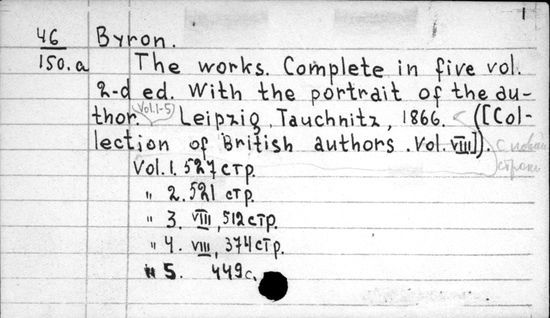 1
46 Byron.
150.a The works. Complete in five vol.
2-d ed. With the portrait of the au-
thor. (Vol.1-5) Leipzig, Tauchnitz, 1866. ([Col-
lection of British authors. Vol. VIII]).
с новой
строки
Vol.1. 527 стр.
" 2. 521 стр.
" 3. VIII, 512 стр.
" 4. VIII, 374 стр.
" 5. 449 с.